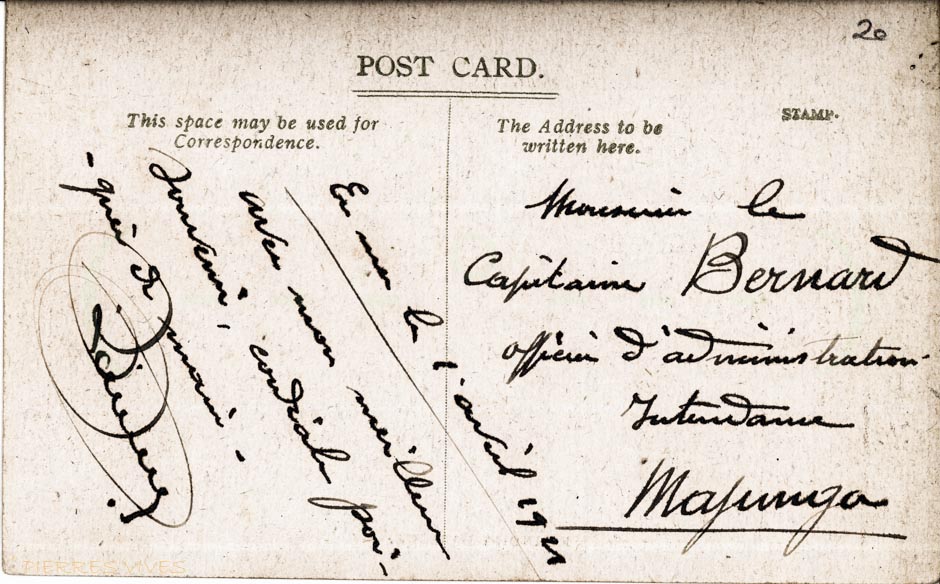 20
POST CARD.
This space may be used for
Correspondence.
The Address to be
written here.
STAMP.
En mer le 1 avril 19
avec mon meilleur
souvenir, cordiale poi-
-gnée de main.
Monsieur le
Capitaine Bernard
officier d'administration
Intendance
Majunga
PIERRES VIVES